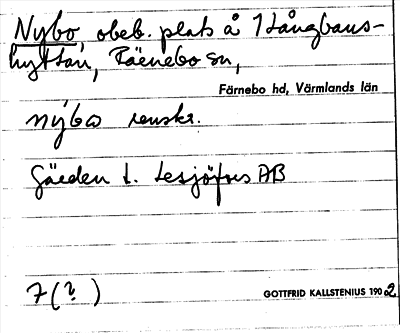 Nybo, obeb. plats å 1 Långbans-
hyttan, Räenebo sn,
Färnebo hd, Värmlands län
nýbω renskr.
Gården t. Lesjöfors AB
7 (?)
GOTTFRID KALLSTENIUS 1902